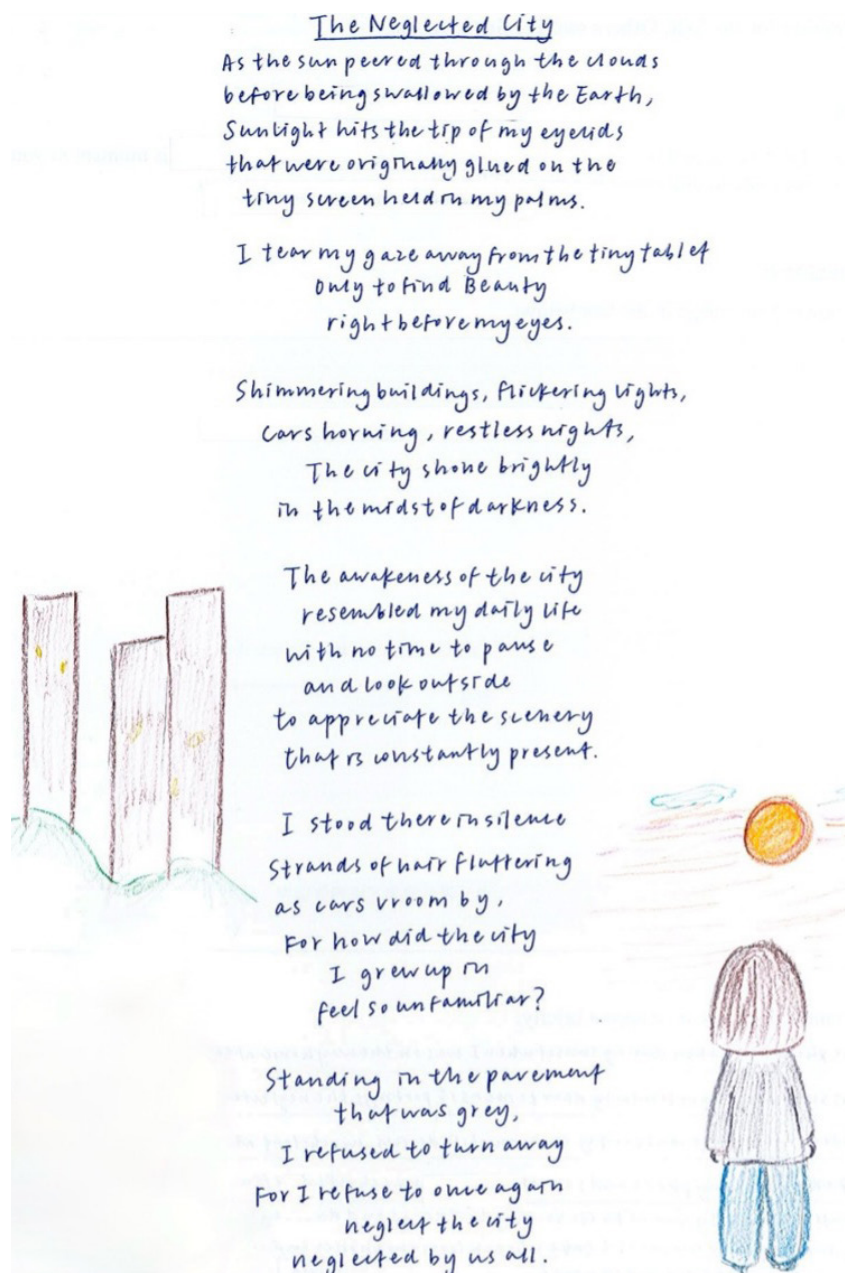 The Neglected City
As the sun peered through the clouds
before being swallowed by the Earth,
Sunlight hits the tip of my eyelids
that were originally glued on the
tiny screen held in my palms.
I tear my gaze away from the tiny tablet
only to find Beauty
right before my eyes.
Shimmering buildings, flickering lights,
cars horning, restless nights,
The city shone brightly
in the midst of darkness.
The awakeness of the city
resembled my daily life
with no time to pause
and look outside
to appreciate the scenery
that is constantly present.
I stood there in silence
Strands of hair fluttering
as cars vroom by,
For how did the city
I grew up in
feel so unfamiliar?
Standing in the pavement
that was grey,
I refused to turn away
For I refuse to once again
neglect the city
neglected by us all.